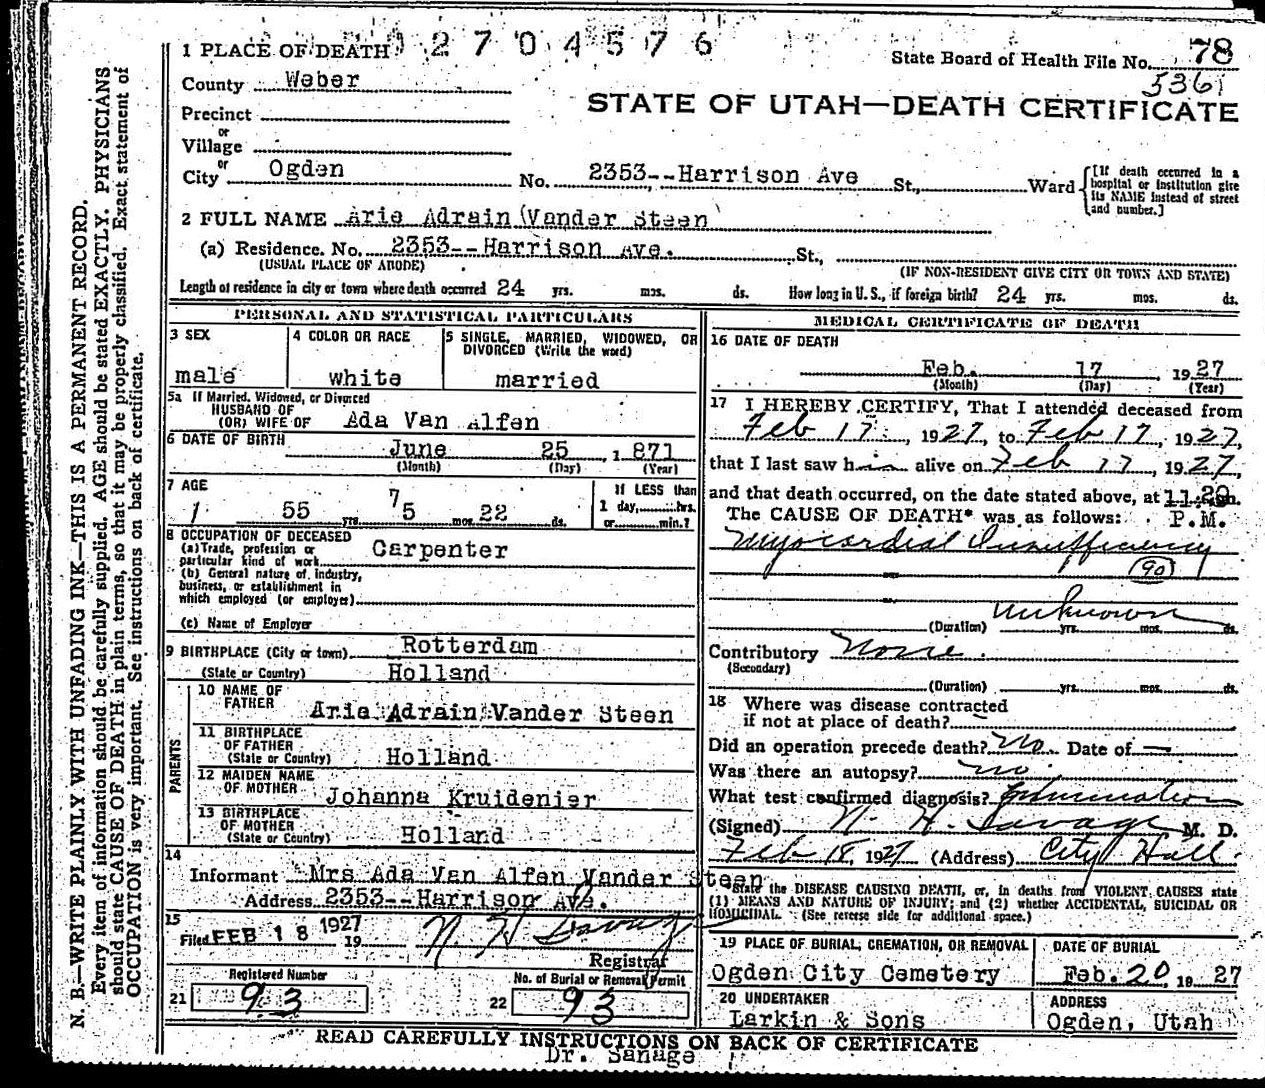 2704576
1 PLACE OF DEATH
State Board of Health File No. 78
5361
County Weber
STATE OF UTAH—DEATH CERTIFICATE
Precinct
or
Village
or
City Ogden No. 2353--Harrison Ave St., Ward
[If death occurred in a hospital or institution give its NAME instead of street and number.]
2 FULL NAME Arie Adrain (Vander Steen
(a) Residence. No. 2353--Harrison Ave. St.,
(USUAL PLACE OF ABODE) (IF NON-RESIDENT GIVE CITY OR TOWN AND STATE)
Length of residence in city or town where death occurred 24 yrs. mos. ds. How long in U. S., if foreign birth? 24 yrs. mos. ds.
PERSONAL AND STATISTICAL PARTICULARS
3 SEX
male
4 COLOR OR RACE
white
5 SINGLE, MARRIED, WIDOWED, OR
DIVORCED (Write the word)
married
5a If Married, Widowed, or Divorced
HUSBAND OF
(OR) WIFE OF Ada Van Alfen
6 DATE OF BIRTH June 25, 1 871
(Month) (Day) (Year)
7 AGE
1 55 yrs. 7 5 mos. 22 ds.
If LESS than
1 day, hrs.
or min.?
8 OCCUPATION OF DECEASED
(a) Trade, profession or
particular kind of work Carpenter
(b) General nature of industry,
business, or establishment in
which employed (or employer)
(c) Name of Employer
9 BIRTHPLACE (City or town) Rotterdam
(State or Country) Holland
PARENTS
10 NAME OF
FATHER Arie Adrain Vander Steen
11 BIRTHPLACE
OF FATHER
(State or Country) Holland
12 MAIDEN NAME
OF MOTHER Johanna Kruidenier
13 BIRTHPLACE
OF MOTHER
(State or Country) Holland
14
Informant Mrs Ada Van Alfen Vander Steen
Address 2353--Harrison Ave.
15
Filed FEB 18 1927 19
N. H. Savage
Registrar
Registered Number
21 93
No. of Burial or Removal Permit
22 93
MEDICAL CERTIFICATE OF DEATH
16 DATE OF DEATH
Feb. 17, 1927
(Month) (Day) (Year)
17 I HEREBY CERTIFY, That I attended deceased from
Feb 17, 1927, to Feb 17, 1927,
that I last saw him alive on Feb 17, 1927,
and that death occurred, on the date stated above, at 11.20 m.
The CAUSE OF DEATH* was as follows: P.M.
Myocardial Insufficiency
(90)
unknown
(Duration) yrs. mos. ds.
Contributory None.
(Secondary)
(Duration) yrs. mos. ds.
18 Where was disease contracted
if not at place of death?
Did an operation precede death? No Date of —
Was there an autopsy? no.
What test confirmed diagnosis? Examination
(Signed) N. H. Savage M. D.
Feb 18, 1927 (Address) City Hall.
*State the DISEASE CAUSING DEATH, or, in deaths from VIOLENT CAUSES state
(1) MEANS AND NATURE OF INJURY; and (2) whether ACCIDENTAL, SUICIDAL OR
HOMICIDAL. (See reverse side for additional space.)
19 PLACE OF BURIAL, CREMATION, OR REMOVAL
Ogden City Cemetery
DATE OF BURIAL
Feb. 20, 19 27
20 UNDERTAKER
Larkin & Sons
ADDRESS
Ogden, Utah
READ CAREFULLY INSTRUCTIONS ON BACK OF CERTIFICATE
Dr. Sanage
N. B.—WRITE PLAINLY WITH UNFADING INK—THIS IS A PERMANENT RECORD.
Every item of information should be carefully supplied. AGE should be stated EXACTLY. PHYSICIANS
should state CAUSE OF DEATH in plain terms, so that it may be properly classified. Exact statement of
OCCUPATION is very important. See instructions on back of certificate.